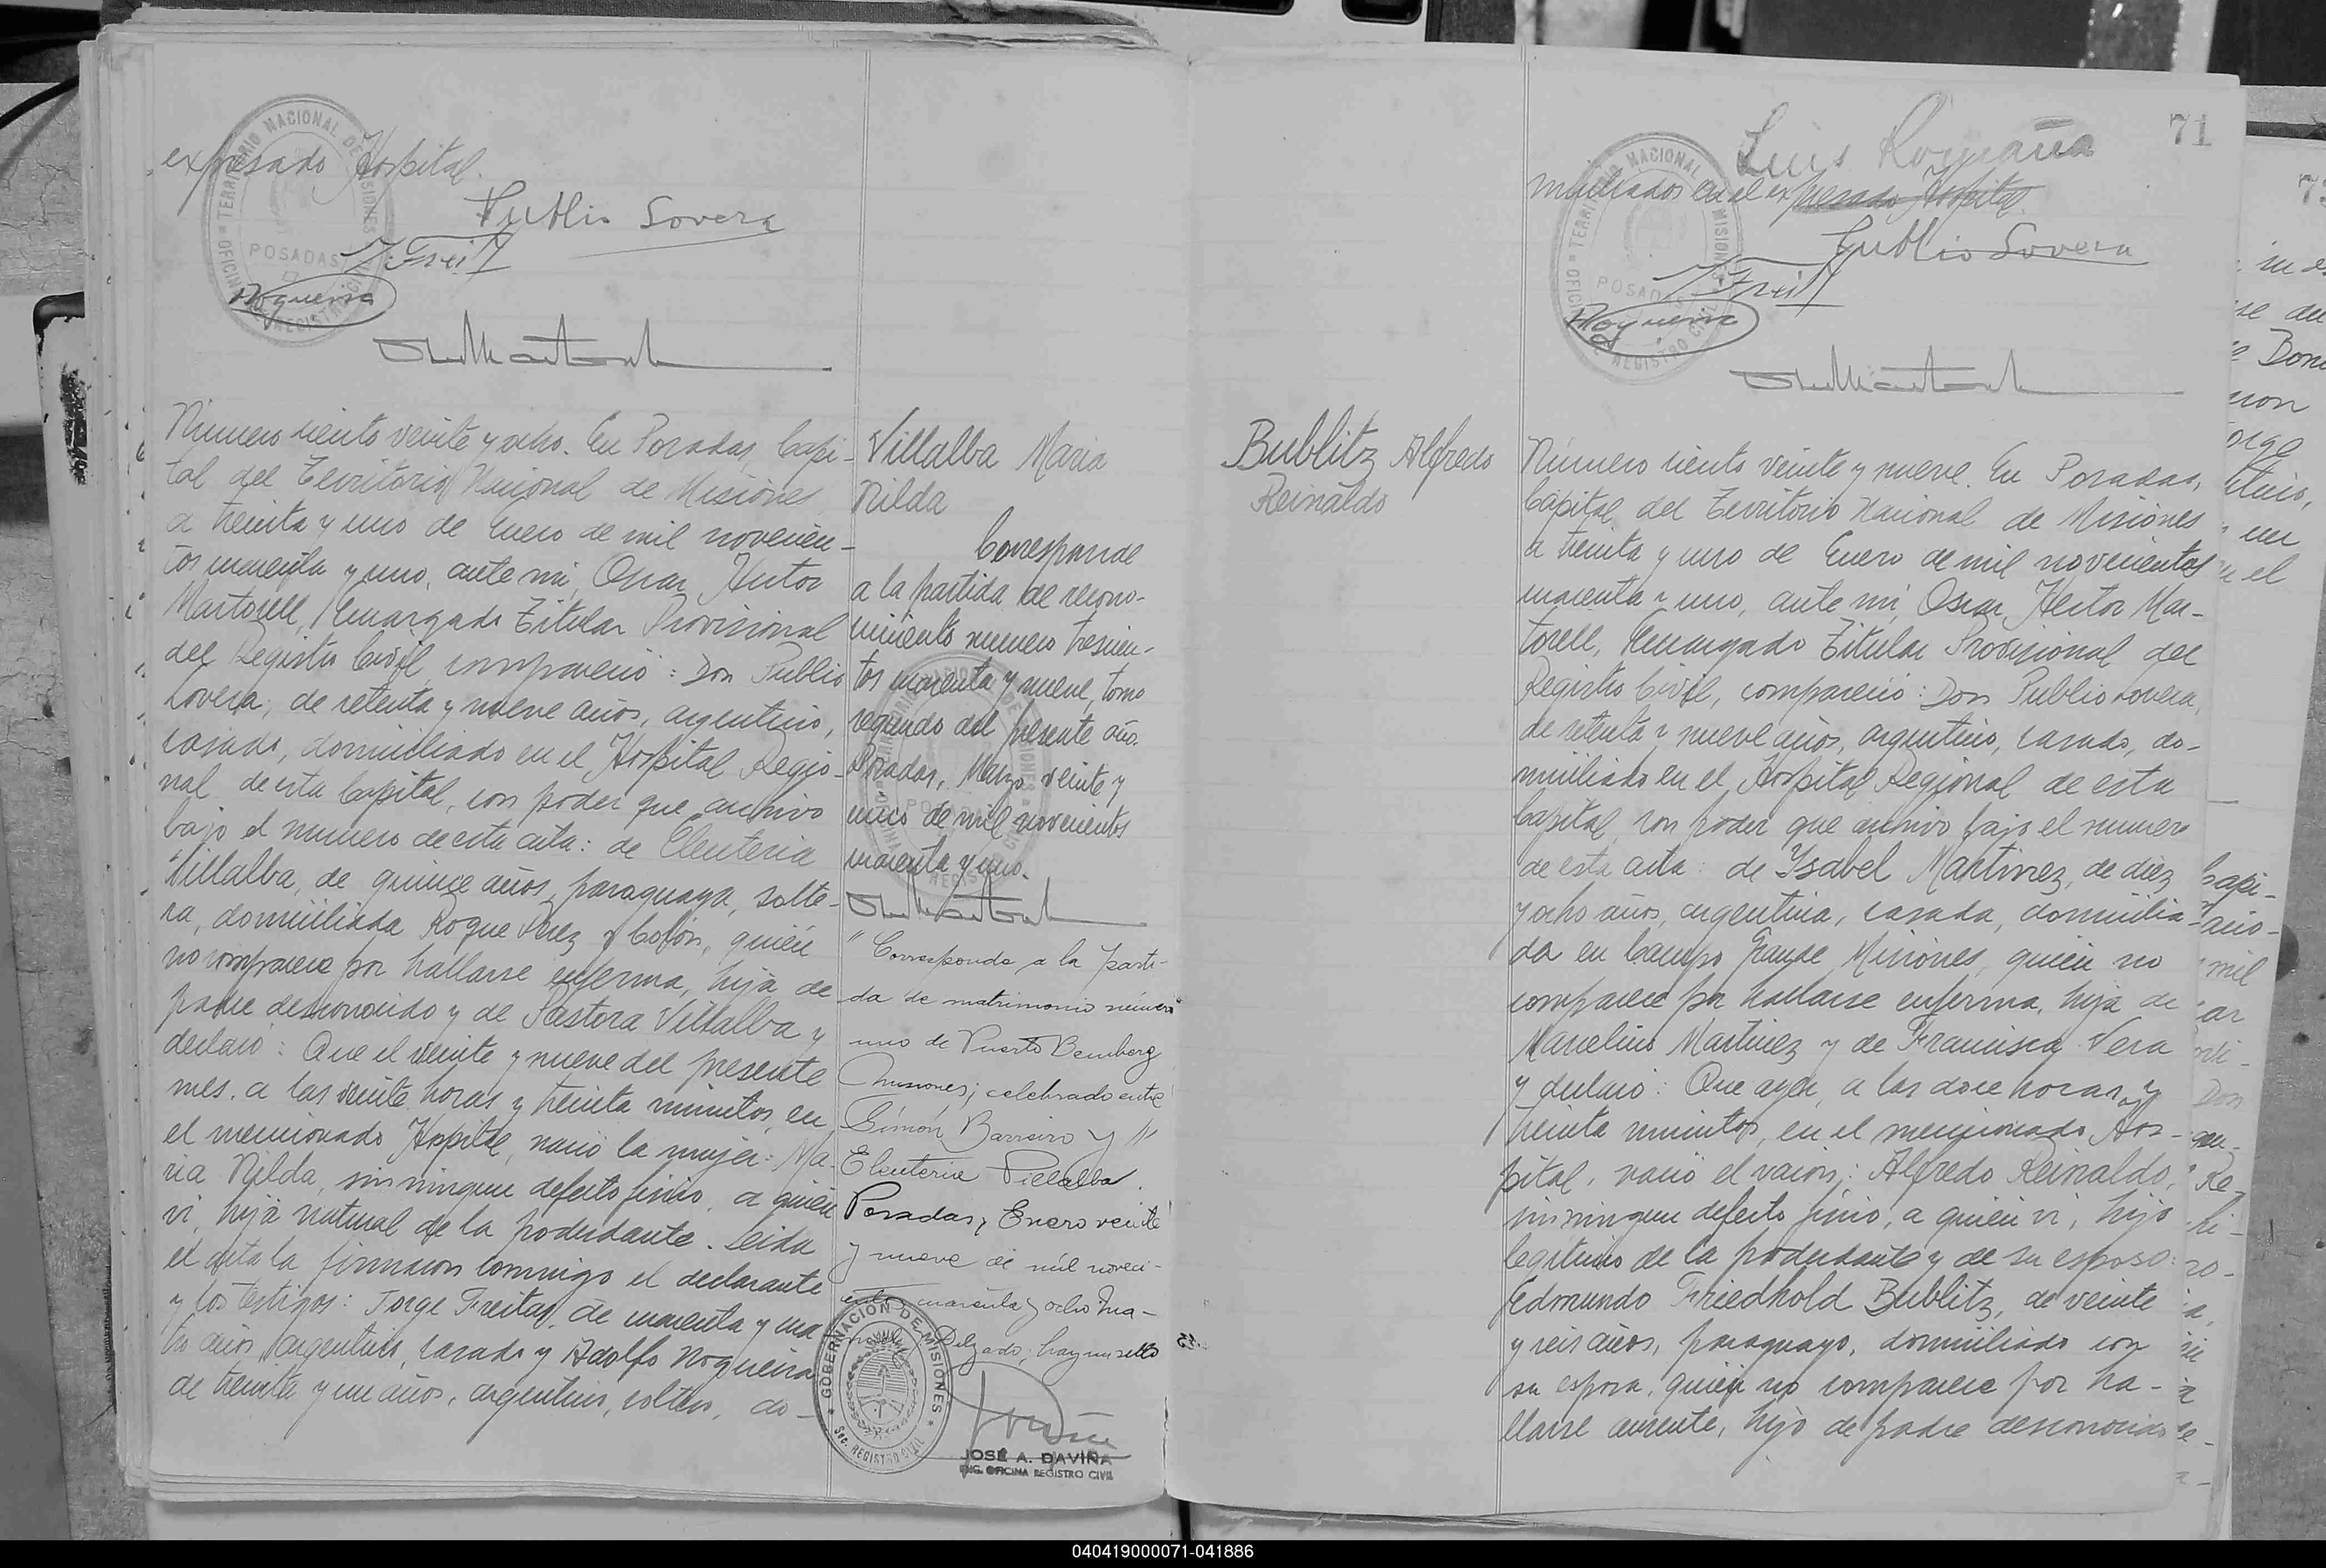 expresado Hospital.
Publio Lovera
J. Freit
Nogueira
TERRITORIO NACIONAL DE MISIONES
POSADAS
OFICINA REGISTRO CIVIL
Número ciento veinte y ocho. En Posadas, Capi-
tal del Territorio Nacional de Misiones
a treinta y uno de Enero de mil novecien-
tos cuarenta y uno, ante mi, Oscar Hector
Martorell, Encargado Titular Provisional
del Registro Civil, compareció: Don Publio
Lovera, de setenta y nueve años, argentino,
casado, domiciliado en el Hospital Regio-
nal de esta Capital, con poder que archivo
bajo el numero de esta acta: de Eleuteria
Villalba, de quince años, paraguaya, solte-
ra, domiciliada Roque Perez y Colón, quién
no comparece por hallarse enferma, hija de
padre desconocido y de Pastora Villalba y
declaró: Que el veinte y nueve del presente
mes, a las veinte horas y treinta minutos, en
el mencionado Hospital, nació la mujer: Ma-
ria Nilda, sin ningun defecto fisico, a quién
vi, hija natural de la poderdante. Leida
el acta la firmaron conmigo el declarante
y los testigos: Jorge Freitas, de cuarenta y cua
tro años, argentino, casado y Adolfo Nogueira
de treinta y un años, argentino, soltero, do-
Villalba Maria
Nilda
Corresponde
a la partida de recono-
cimiento numero trescien-
tos cuarenta y nueve, tomo
segundo del presente año.
Posadas, Marzo veinte y
cinco de mil novecientos
cuarenta y uno.
"Corresponde a la parti-
da de matrimonio número
uno de Puerto Bemberg
Misiones; celebrado entre
Simón Barreiro y
Eleuteria Villalba.
Posadas, Enero veinte
y nueve de mil noveci-
entos cuarenta y ocho Ma-
Delgado; hay un sello
GOBERNACION DE MISIONES
Sec. REGISTRO CIVIL
JOSÉ A. DAVIÑA
ENC. OFICINA REGISTRO CIVIL
71
Luis Romaña
miciliados en el expresado Hospital.
Publio Lovera
J. Freit
Nogueira
TERRITORIO NACIONAL DE MISIONES
POSADAS
OFICINA REGISTRO CIVIL
Bublitz Alfredo
Reinaldo
Número ciento veinte y nueve. En Posadas,
Capital del Territorio Nacional de Misiones
a treinta y uno de Enero de mil novecientos
cuarenta y uno, ante mi, Oscar Hector Mar-
torell, Encargado Titular Provisional del
Registro Civil, compareció: Don Publio Lovera,
de setenta y nueve años, argentino, casado, do-
miciliado en el Hospital Regional de esta
Capital, con poder que archivo bajo el numero
de esta acta: de Ysabel Martinez, de diez
y ocho años, argentina, casada, domicilia-
da en Campo Grande Misiones, quién no
comparece por hallarse enferma, hija de
Marcelino Martinez y de Francisca Vera
y declaró: Que ayer, a las doce horas y
treinta minutos, en el mencionado Hos-
pital, nació el varón: Alfredo Reinaldo,
sin ningun defecto fisico, a quién vi, hijo
legitimo de la poderdante y de su esposo:
Edmundo Friedhold Bublitz, de veinte
y seis años, paraguayo, domiciliado con
su esposa, quién no comparece por ha-
llarse ausente, hijo de padre desconocido
040419000071-041886